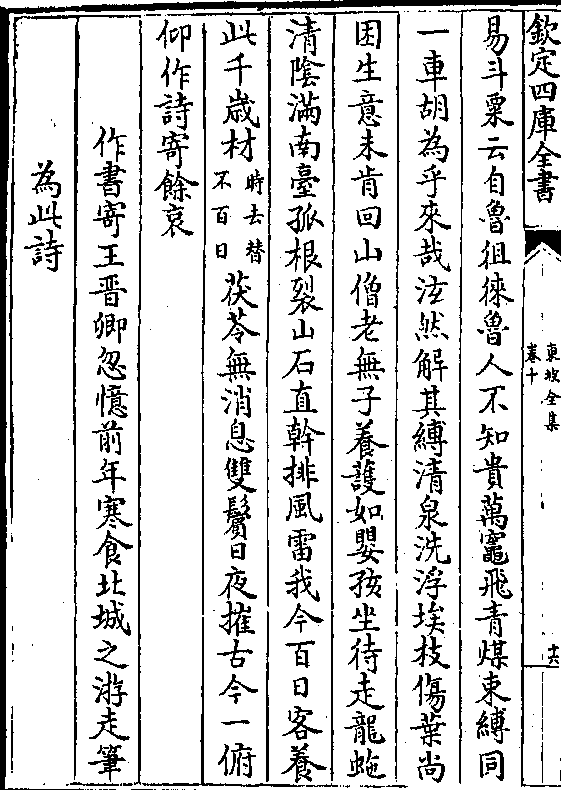 欽定四庫全書
東坡全集
卷十
十六
易斗粟云自魯徂徠魯人不知貴萬竈飛青煤束縛同
一車胡為乎來哉泫然解其縛清泉洗浮埃枝傷葉尚
困生意未肯回山僧老無子養護如嬰孩坐待走龍蛇
清陰滿南臺孤根裂山石直幹排風雷我今百日客養
此千歲材時去替不百日茯苓無消息雙鬢日夜摧古今一俯
仰作詩寄餘哀
作書寄王晉卿忽憶前年寒食北城之游走筆
為此詩